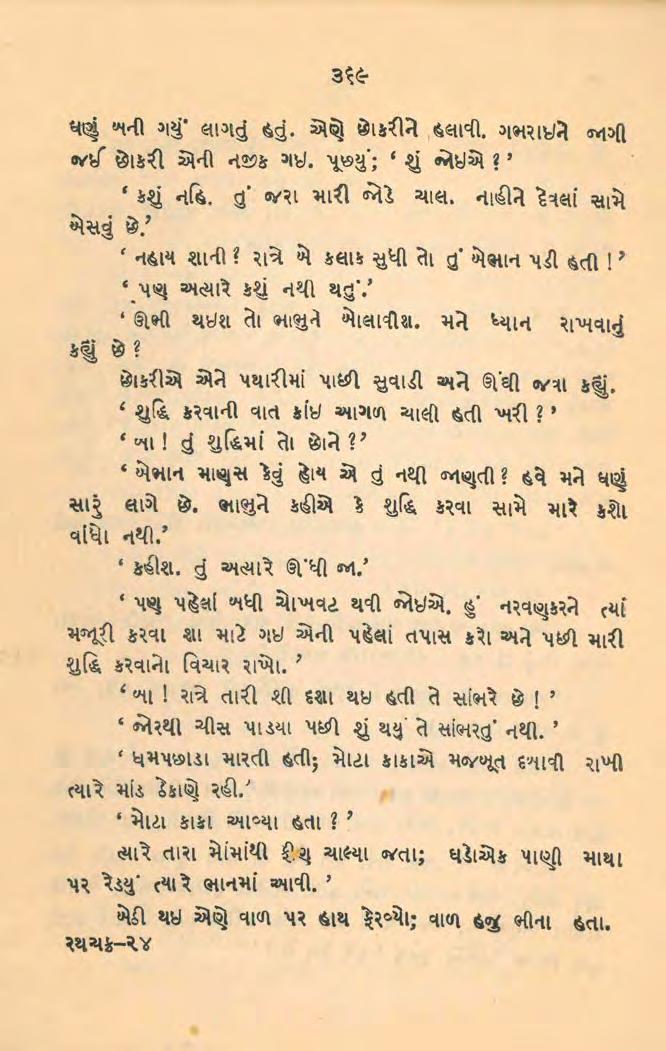 ૩૬૯
ઘણું બની ગયું લાગતું હતું. એણે છોકરીને હલાવી. ગભરાઇને જાગી
જઈ છોકરી એની નજીક ગઇ. પૂછયું; ‘ શું જોઇએ ? ’
‘ કશું નહિ. તું જરા મારી જોડે ચાલ. નાહીને દેવલાં સામે
બેસવું છે.’
‘ નહાય શાની ? રાત્રે બે કલાક સુધી તો તું બેભાન પડી હતી ! ’
‘ પણ અત્યારે કશું નથી થતું.’
‘ ઊભી થઇશ તો ભાભુને બોલાવીશ. મને ધ્યાન રાખવાનું
કહ્યું છે ?
છોકરીએ એને પથારીમાં પાછી સુવાડી અને ઊંઘી જવા કહ્યું.
‘ શુદ્ધિ કરવાની વાત કાંઇ આગળ ચાલી હતી ખરી ? ’
‘ બા ! તું શુદ્ધિમાં તો છોને ?’
‘ બેભાન માણસ કેવું હોય એ તું નથી જાણતી ? હવે મને ઘણું
સારું લાગે છે. ભાભુને કહીએ કે શુદ્ધિ કરવા સામે મારે કશો
વાંધો નથી.’
‘ કહીશ. તું અત્યારે ઊંઘી જા.’
‘ પણ પહેલાં બધી ચોખવટ થવી જોઇએ. હું નરવણકરને ત્યાં
મજૂરી કરવા શા માટે ગઇ એની પહેલાં તપાસ કરો અને પછી મારી
શુદ્ધિ કરવાનો વિચાર રાખો. ’
‘ બા ! રાત્રે તારી શી દશા થઇ હતી તે સાંભરે છે ! ’
‘ જોરથી ચીસ પાડયા પછી શું થયું તે સાંભરતું નથી. ’
‘ ધમપછાડા મારતી હતી; મોટા કાકાએ મજબૂત દબાવી રાખી
ત્યારે માંડ ઠેકાણે રહી.’
‘ મોટા કાકા આવ્યા હતા ? ’
ત્યારે તારા મોંમાંથી ફીણ ચાલ્યા જતા; ઘડોએક પાણી માથા
પર રેડયું ત્યારે ભાનમાં આવી. ’
બેઠી થઇ એણે વાળ પર હાથ ફેરવ્યો; વાળ હજુ ભીના હતા.
રથચક્ર–૨૪